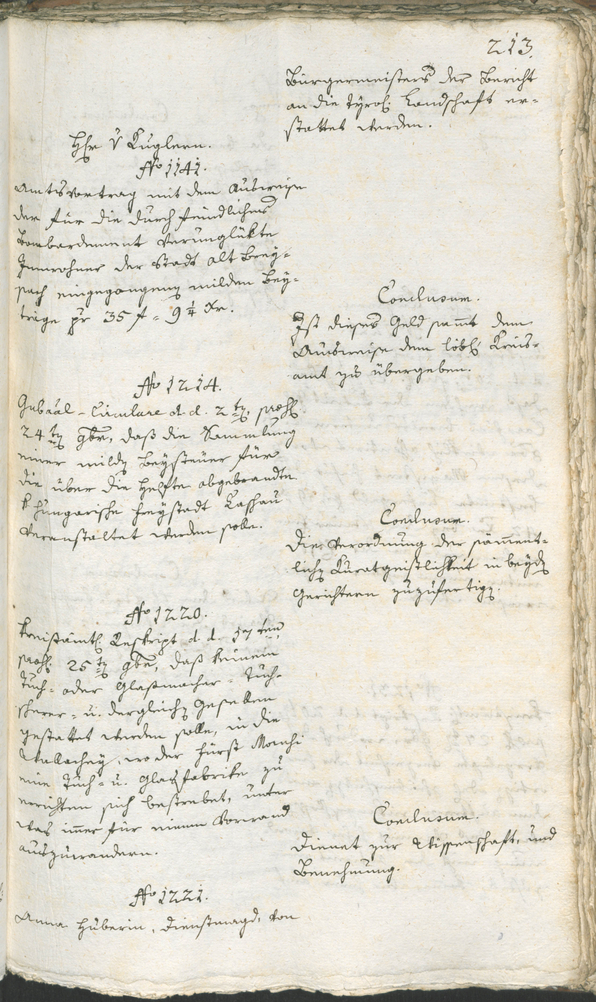 213.
Bürgermeisters der Bericht
an die tÿrol. Landschaft er-
stattet werden.
Hhr v Kuglern.
No 1141.
Amtsvortrag mit dem Ausweise
der für die durch feindliches
Bombardement verunglükte
Innwohner der Stadt alt Brey-
sach eingegangenen milden Bey-
träge pr 35 f. 9¼ Xr.
Conclusum.
Ist dieses Geld sammt dem
Ausweise dem löbl. Kreis-
amt zu übergeben.
No 1214.
Gubial-Circulare d. d. 2ten, præs.
24ten 9bre, daß die Sammlung
einer milden Beysteuer für
die über die Helfte abgebrandte
k. hungarische freystadt Kaschau
veranstaltet werden solle.
Conclusum.
Die Verordnung der sämment-
lichen Kuratgeistlichkeit in beyden
Gerichtern zuzufertigen.
No 1220.
Kreisämtl. Reskript d. d. 17ten,
præs. 25ten 9bre, daß keinem
Tuch- oder Glasmacher- Tuch-
scherer- u. dergleichen Gesellen
gestattet werden solle, in die
Wallachey, wo der Fürst
eine Tuch- u. Glasfabrike zu
errichten sich bestrebet, unter
was imer für einem Vorwand
auszuwandern.
Conclusum.
Dienet zur Wissenschaft, und
Benehmung.
No 1221.
Anna Huberin, Dienstmagd, von